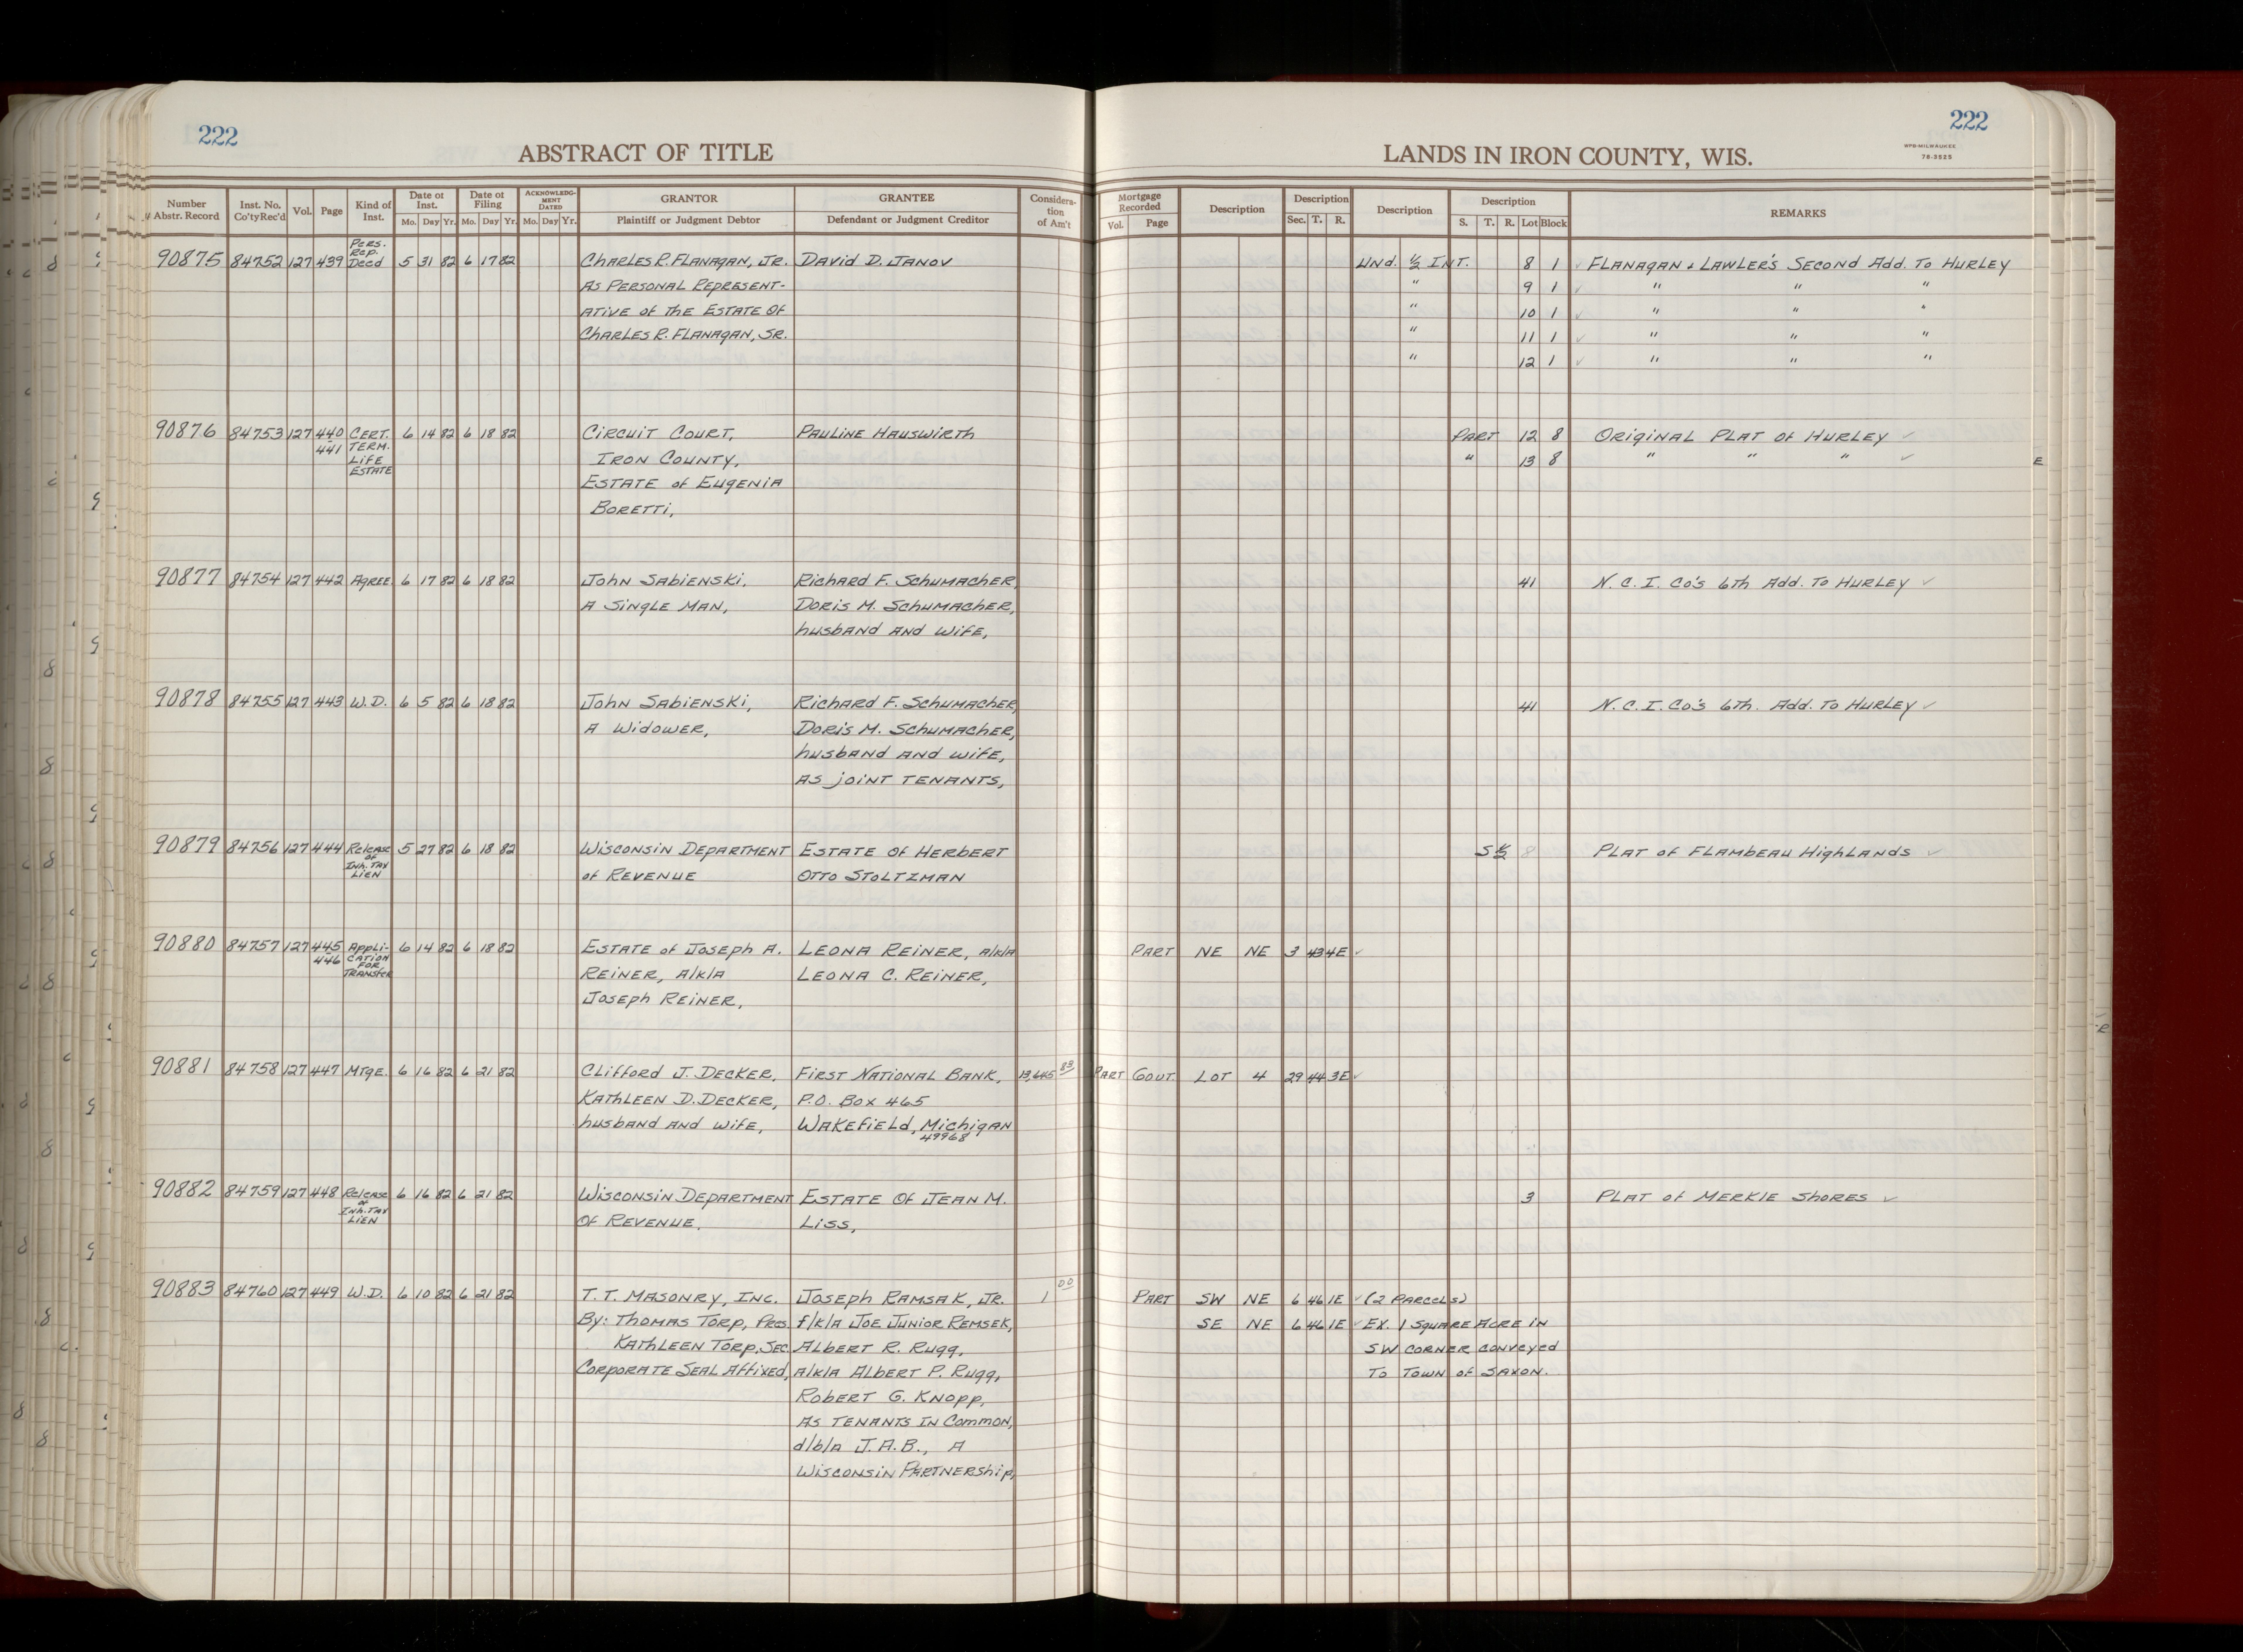 222
222
ABSTRACT OF TITLE
LANDS IN IRON COUNTY, WIS.
WPB-MILWAUKEE
78-3925
Number Abstr. Record | Inst. No. Co'tyRec'd | Vol. | Page | Kind of Inst. | Date of Inst. Mo. Day Yr. | Date of Filing Mo. Day Yr. | ACKNOWLEDGMENT DATED Mo. Day Yr. | GRANTOR Plaintiff or Judgment Debtor | GRANTEE Defendant or Judgment Creditor | Consideration of Am't | Mortgage Recorded Vol. Page | Description | Description Sec. T. R. | Description | Description S. T. R. Lot Block | REMARKS
90875 84752 127 439 Pers. Rep. Deed 5 31 82 6 17 82 Charles R. Flanagan, Jr. David D. Janov Und. 1/2 Int. 8 1 Flanagan & Lawler's Second Add. To Hurley
As Personal Represent- " 9 1 " " "
ative of the Estate of " 10 1 " " "
Charles R. Flanagan, Sr. " 11 1 " " "
" 12 1 " " "
90876 84753 127 440 Cert. 6 14 82 6 18 82 Circuit Court, Pauline Hauswirth Part 12 8 Original Plat of Hurley
441 Term. Life Estate Iron County, " 13 8 " " "
Estate of Eugenia
Boretti,
90877 84754 127 442 Agree. 6 17 82 6 18 82 John Sabienski, Richard F. Schumacher, 41 N. C. I. Co's 6th Add. To Hurley
A Single Man, Doris M. Schumacher,
husband and wife,
90878 84755 127 443 W.D. 6 5 82 6 18 82 John Sabienski, Richard F. Schumacher, 41 N. C. I. Co's 6th. Add. To Hurley
A Widower, Doris M. Schumacher,
husband and wife,
as joint tenants,
90879 84756 127 444 Release of Inh. Tax Lien 5 27 82 6 18 82 Wisconsin Department Estate of Herbert S 1/2 8 Plat of Flambeau Highlands
of Revenue Otto Stoltzman
90880 84757 127 445 446 Appli- cation for Transfer 6 14 82 6 18 82 Estate of Joseph A. Leona Reiner, a/k/a Part NE NE 3 43 4E
Reiner, a/k/a Leona C. Reiner,
Joseph Reiner,
90881 84758 127 447 Mtge. 6 16 82 6 21 82 Clifford J. Decker, First National Bank, 13,645 83 Part Govt. Lot 4 29 44 3E
Kathleen D. Decker, P.O. Box 465
husband and wife, Wakefield, Michigan
49968
90882 84759 127 448 Release of Inh. Tax Lien 6 16 82 6 21 82 Wisconsin Department Estate of Jean M. 3 Plat of Merkie Shores
Of Revenue, Liss,
90883 84760 127 449 W.D. 6 10 82 6 21 82 T.T. Masonry, Inc. Joseph Ramsak, Jr. 1 00 Part SW NE 6 46 1E (2 Parcels)
By: Thomas Torp, Pres. f/k/a Joe Junior Remsek, SE NE 6 46 1E Ex. 1 Square Acre in
Kathleen Torp, Sec. Albert R. Rugg, SW corner conveyed
Corporate Seal Affixed, a/k/a Albert P. Rugg, To Town of Saxon.
Robert G. Knopp,
As Tenants In Common,
d/b/a J.A.B., A
Wisconsin Partnership,